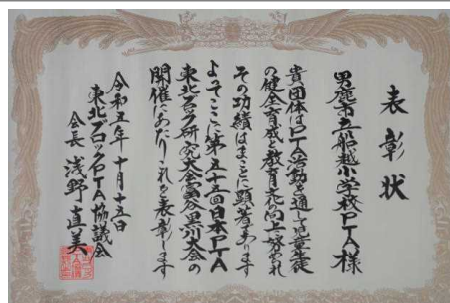 表彰状
男鹿市立船越小学校PTA様
貴団体はPTA活動を通して児童生徒
の健全育成と教育文化の向上に努められ
その功績はまことに顕著であります
よってここに第五十五回日本PTA
東北ブロック研究大会富谷黒川大会の
開催にあたりこれを表彰します
令和五年十月十五日
東北ブロックPTA協議会
会長 浅野直美